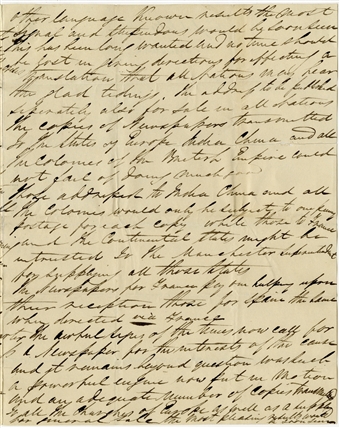 other language known results the most
signal and stupendous would be soon seen
This has been long wanted and no time should
be lost in giving directions for effecting a
Translation that all Nations may hear
the glad tidings. The address to be published
separately also for sale in all nations
The copies of Newspapers transmitted
to the States of Europe India China and all
the Colonies of the British Empire could
not fail of doing much good
Those addressed to India China and all
the Colonies would only be subject to one penny
Postage for each copy while those to France
and the Continental states might be
intrusted to the Manchester
for supplying all those states
The Newspapers for France pay one halfpenny upon
their reception those for Spain the same
when directed via France
the awful signs of the times now call for
a Newspaper for the interests of the cause
and it remains beyond question was such
a powerful engine now put in motion
and an adequate number of copies transmitted
to all the Nations of Europe as well as a supply
for general sale the most